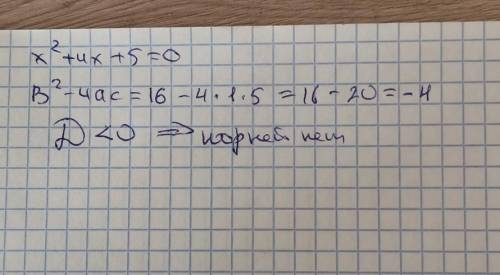 x²+4x+5=0
B²-4ac=16-4·1·5=16-20=-4
D<0 ⇒ корней нет